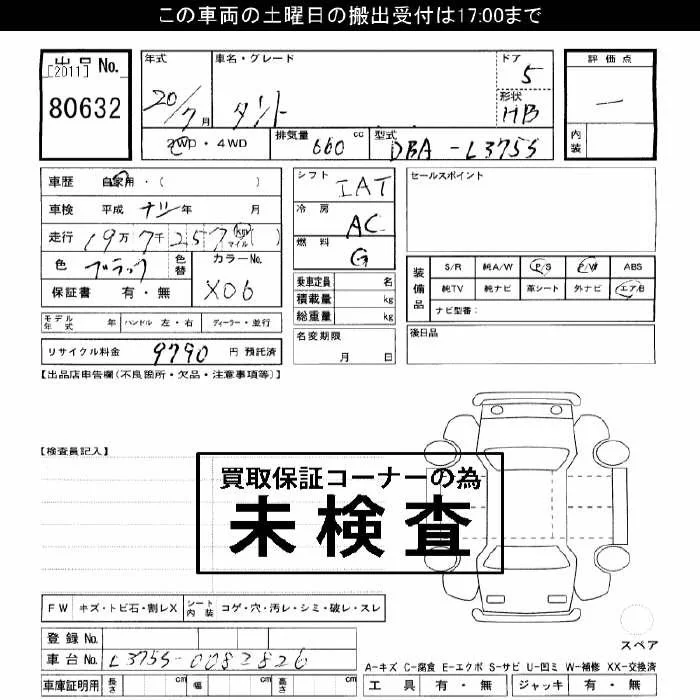 この車両の土曜日の搬出受付は17:00まで
出品 No.
[2011]
80632
年式
20/7月
車名・グレード
タント
ドア
5
形状
HB
評価点
—
内装
2WD・4WD
排気量 660 cc
型式 DBA-L375S
車歴 自家用・( )
車検 平成 ナシ 年 月
走行 19万7千257 (km マイル)( )
色 ブラック
色替
カラーNo.
X06
保証書 有・無
シフト
IAT
冷房
AC
燃料
G
乗車定員 名
積載量 kg
総重量 kg
名変期限
月 日
セールスポイント
装備品
S/R 純A/W P/S P/W ABS
純TV 純ナビ 革シート 外ナビ エアB
ナビ型番:
後日品
モデル年式 年 ハンドル 左・右 ディーラー・並行
リサイクル料金 9790 円 預託済
【出品店申告欄(不良箇所・欠品・注意事項等)】
【検査員記入】
買取保証コーナーの為
未検査
FW キズ・トビ石・割レX シート内装 コゲ・穴・汚レ・シミ・破レ・スレ
登録 No.
車台 No. L375S-0082826
車庫証明用 長さ cm 幅 cm 高さ cm
スペア
A-キズ C-腐食 E-エクボ S-サビ U-凹ミ W-補修 XX-交換済
工具 有・無 ジャッキ 有・無